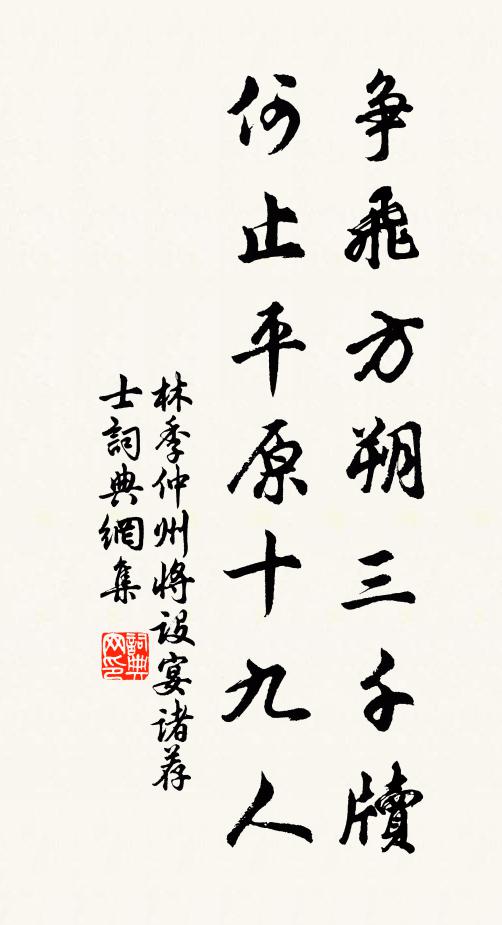 争飛方朔三千牘
何止平原十九人
林季仲州將設宴諸荐
士詞典網集
詞典網印